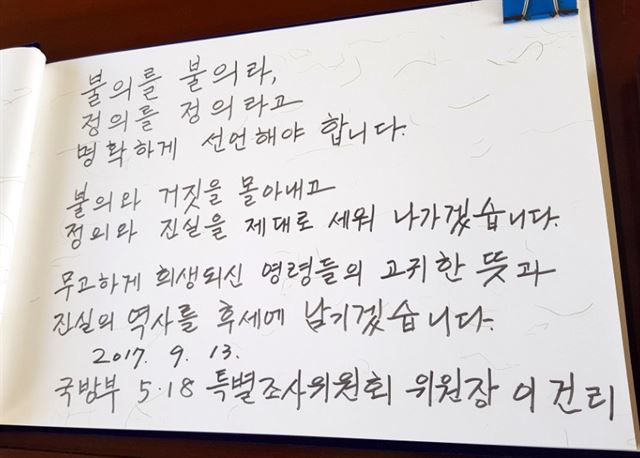 불의를 불의라,
정의를 정의라고
명확하게 선언해야 합니다.
불의와 거짓을 몰아내고
정의와 진실을 제대로 세워 나가겠습니다.
무고하게 희생되신 영령들의 고귀한 뜻과
진실의 역사를 후세에 남기겠습니다.
2017. 9. 13.
국방부 5·18 특별조사위원회 위원장 이건리